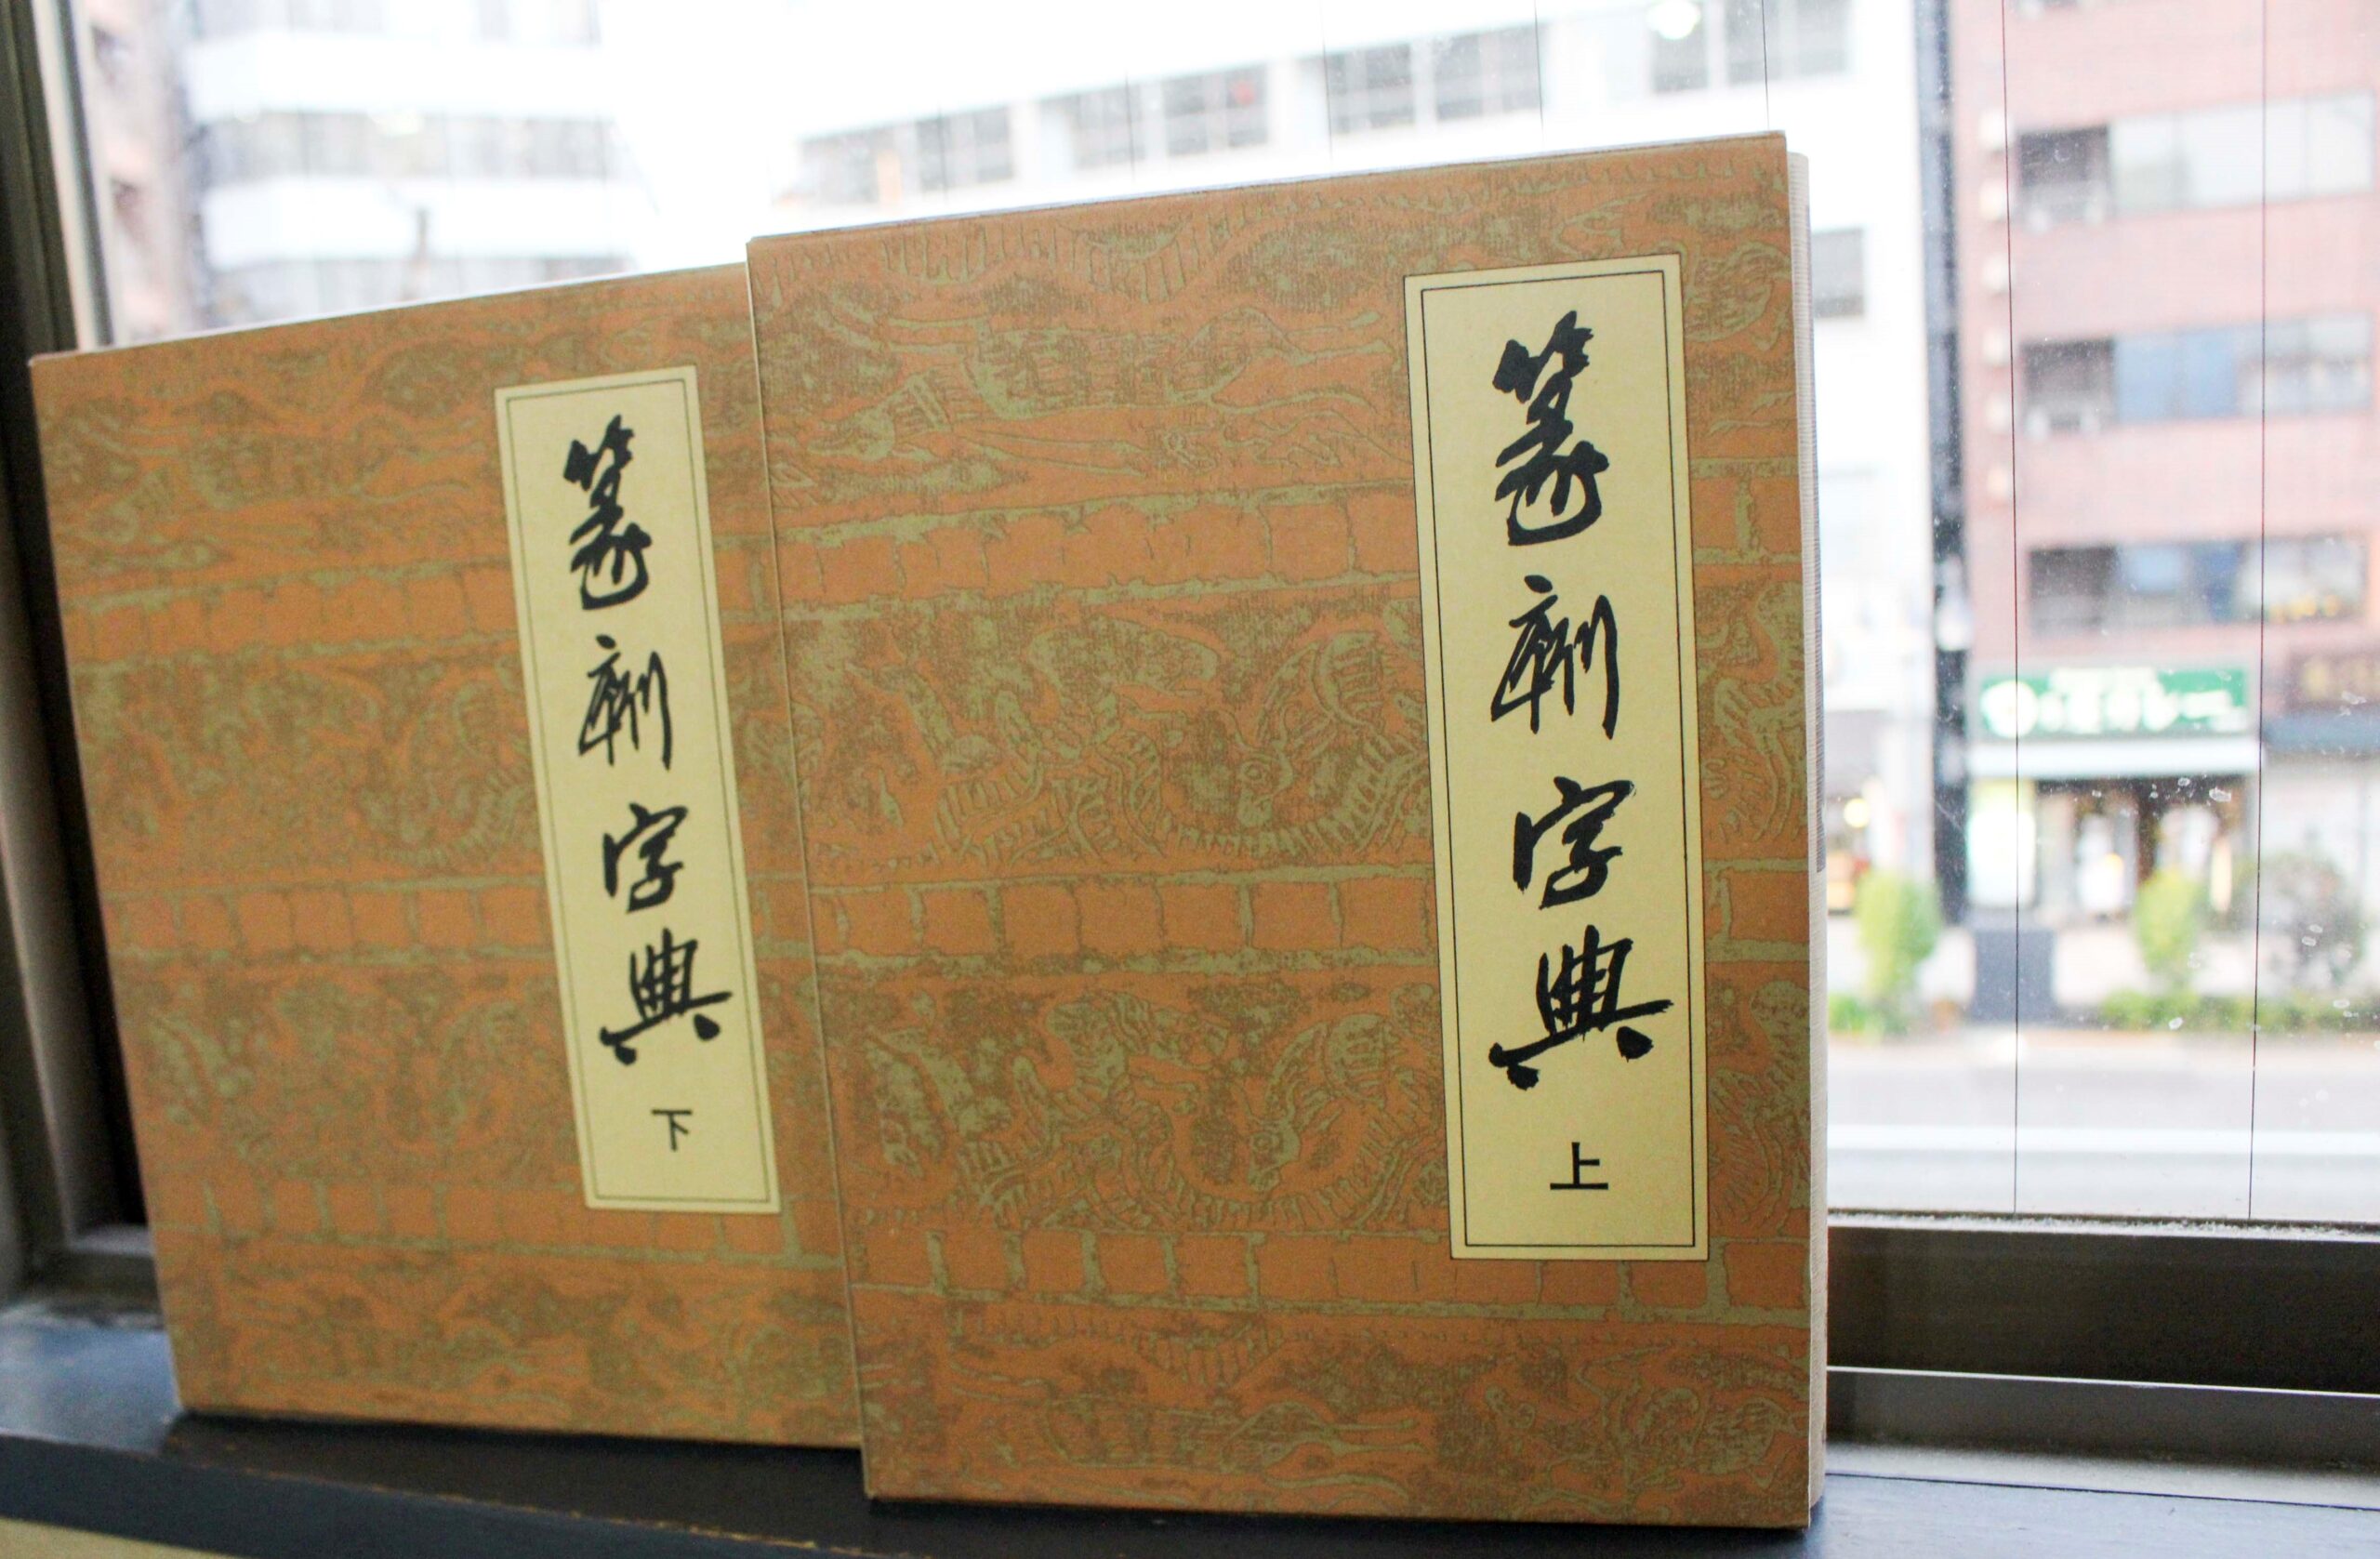 篆刻字典 上
篆刻字典 下